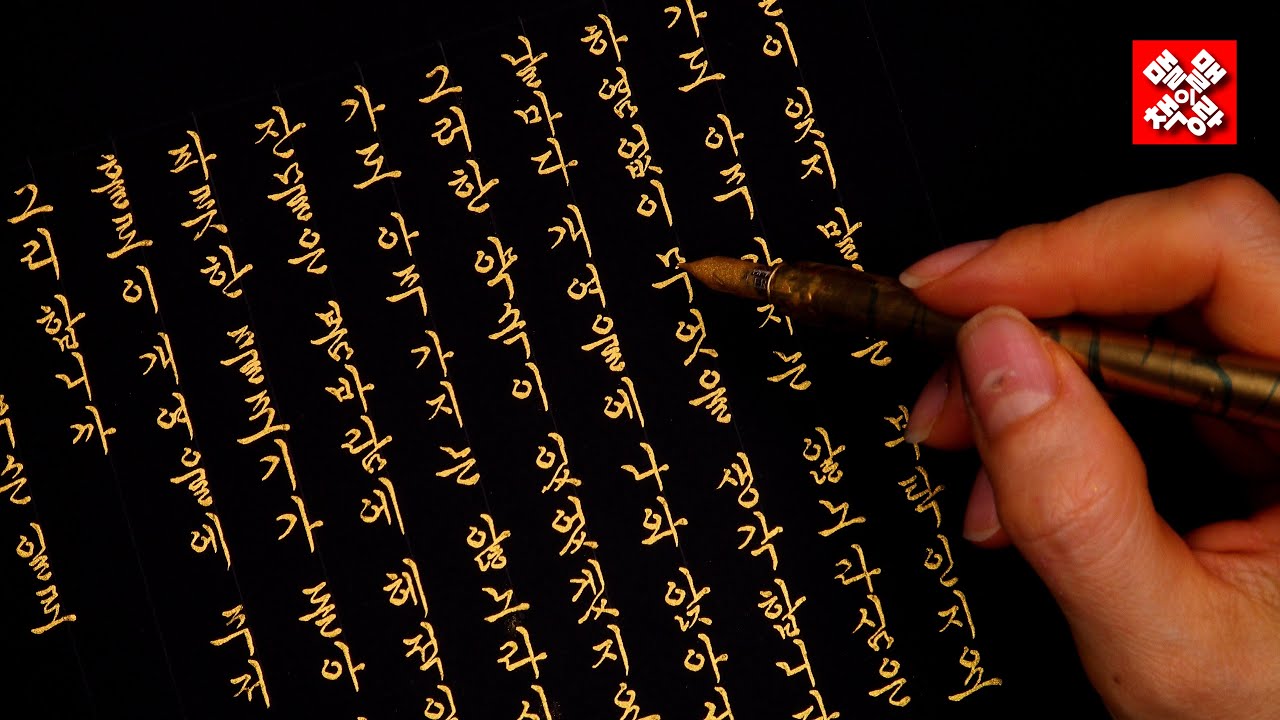 무슨 일로
그리합니까
홀로이 개여울에 주저
파릇한 풀포기가 돋아
잔물은 봄바람에 헤적일
가도 아주 가지는 않노라시
그러한 약속이 있었겠지요
날마다 개여울에 나와 앉아서
하염없이 무엇을 생각합니다
가도 아주 가지는 않노라심은
잊지 부탁인지요